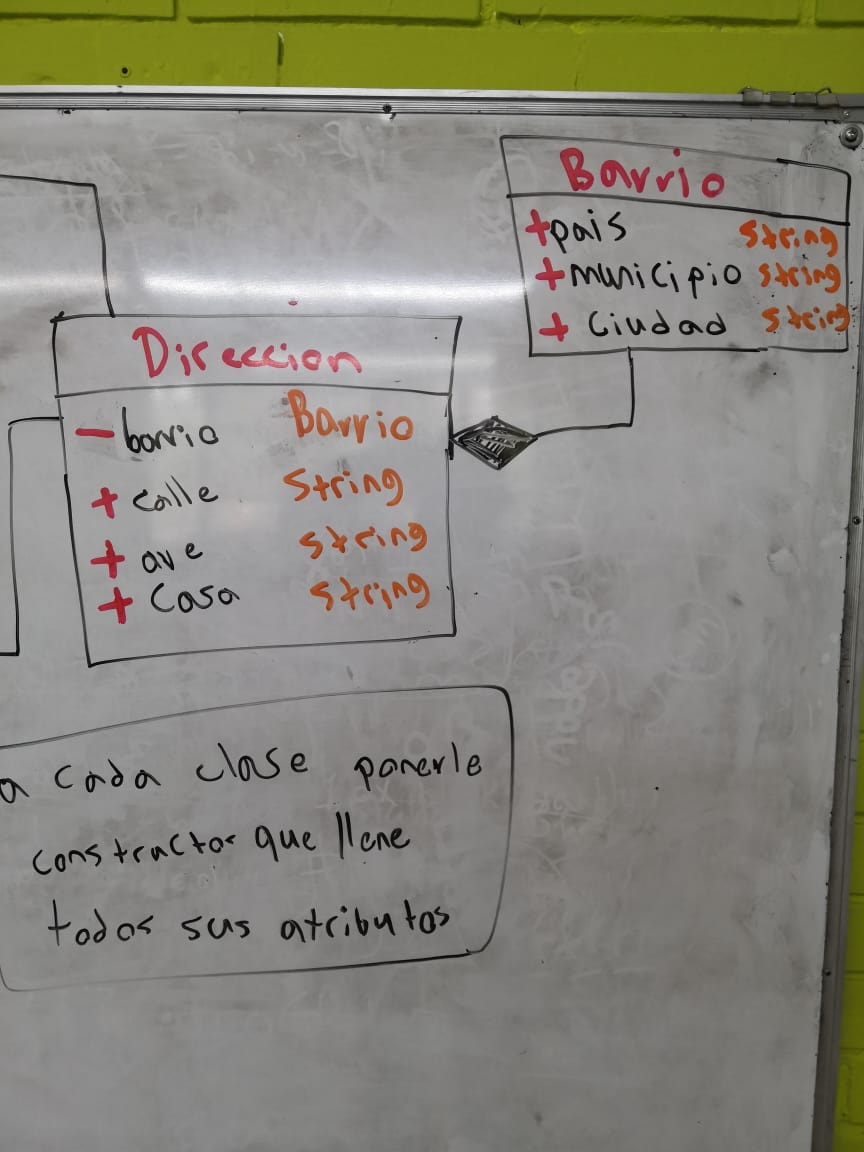 Barrio
+pais String
+municipio string
+ Ciudad string
Direccion
- barrio Barrio
+ calle String
+ ave string
+ Casa string
a cada clase ponerle
constructor que llene
todos sus atributos